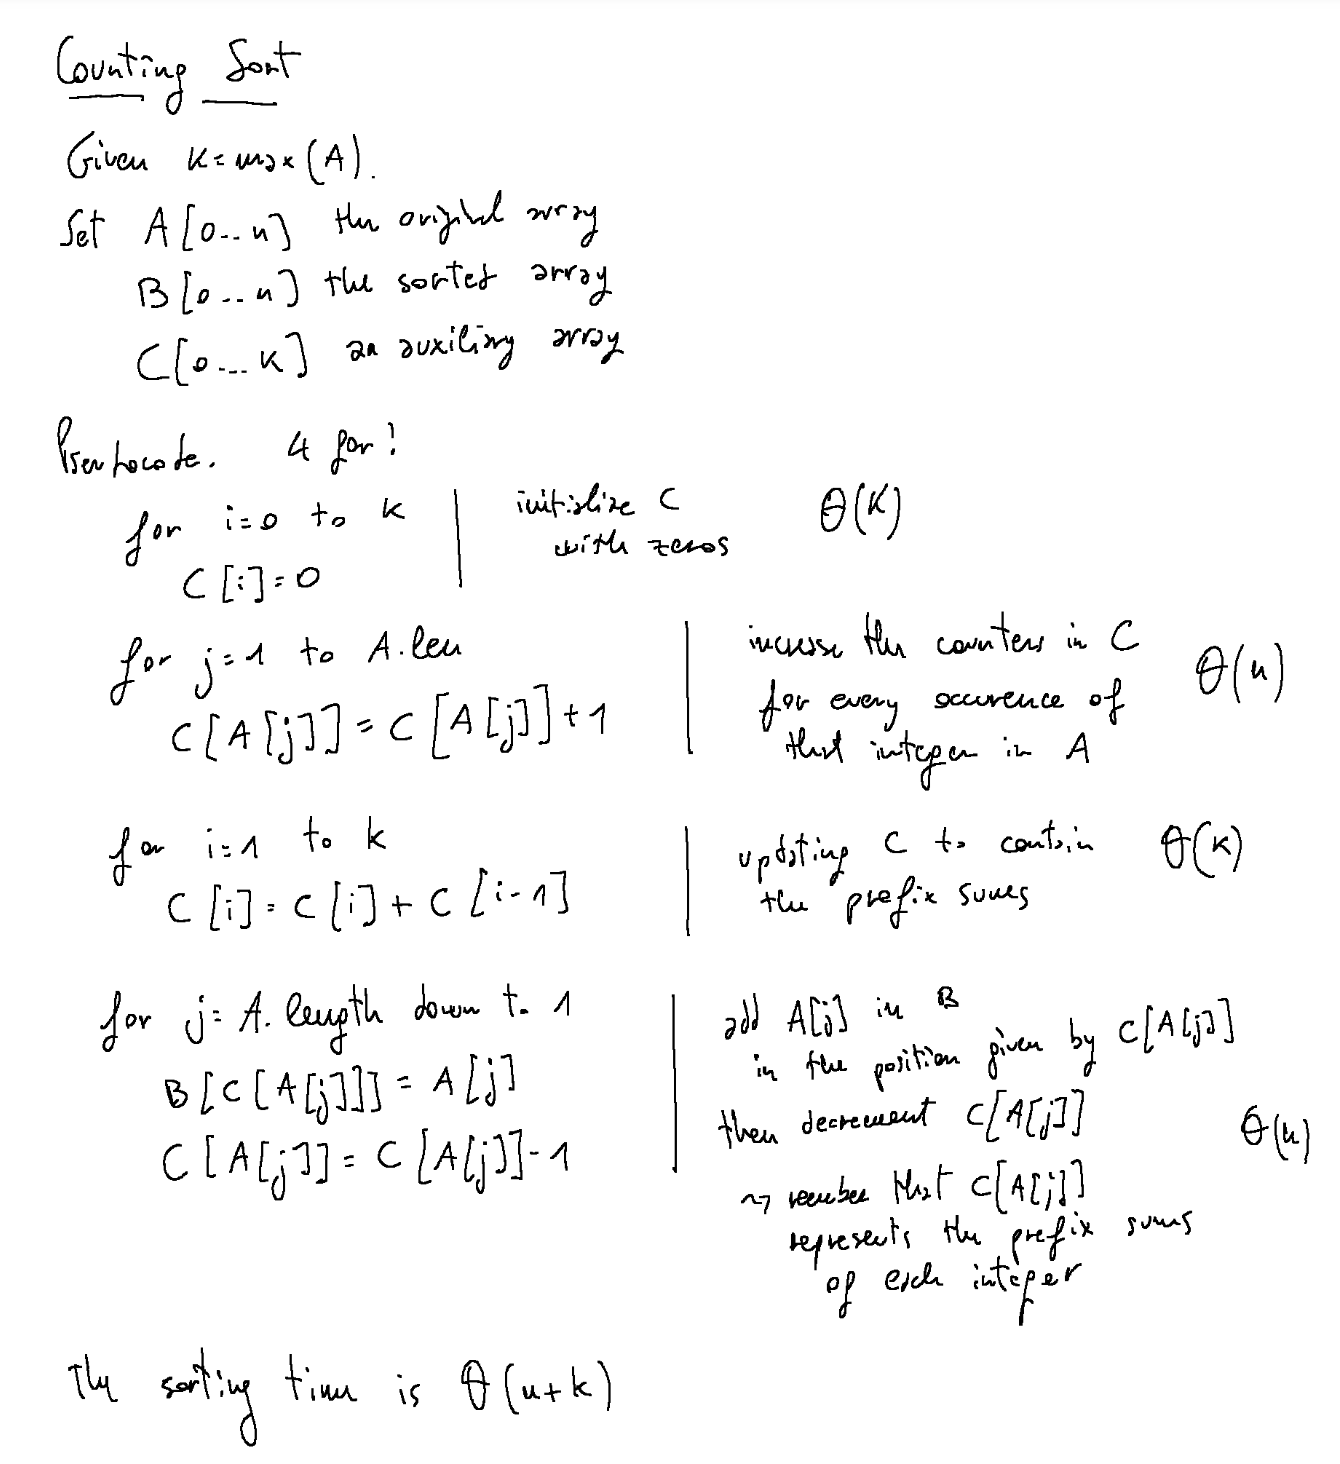 Counting Sort
Given k=max(A).
Set A[0..n] the original array
B[0..n] the sorted array
C[0...k] an auxiliary array
Pseudocode. 4 for!
for i=0 to k
C[i]=0
initialize C
with zeros
Θ(k)
for j=1 to A.len
C[A[j]] = C[A[j]]+1
increase the counters in C
for every occurence of
that integer in A
Θ(n)
for i=1 to k
C[i]=C[i]+C[i-1]
updating C to contain
the prefix sums
Θ(k)
for j=A.length down to 1
B[C[A[j]]] = A[j]
C[A[j]]=C[A[j]]-1
add A[j] in B
in the position given by C[A[j]]
then decrement C[A[j]]
Θ(n)
~> remember that C[A[j]]
represents the prefix sums
of each integer
The sorting time is Θ(n+k)